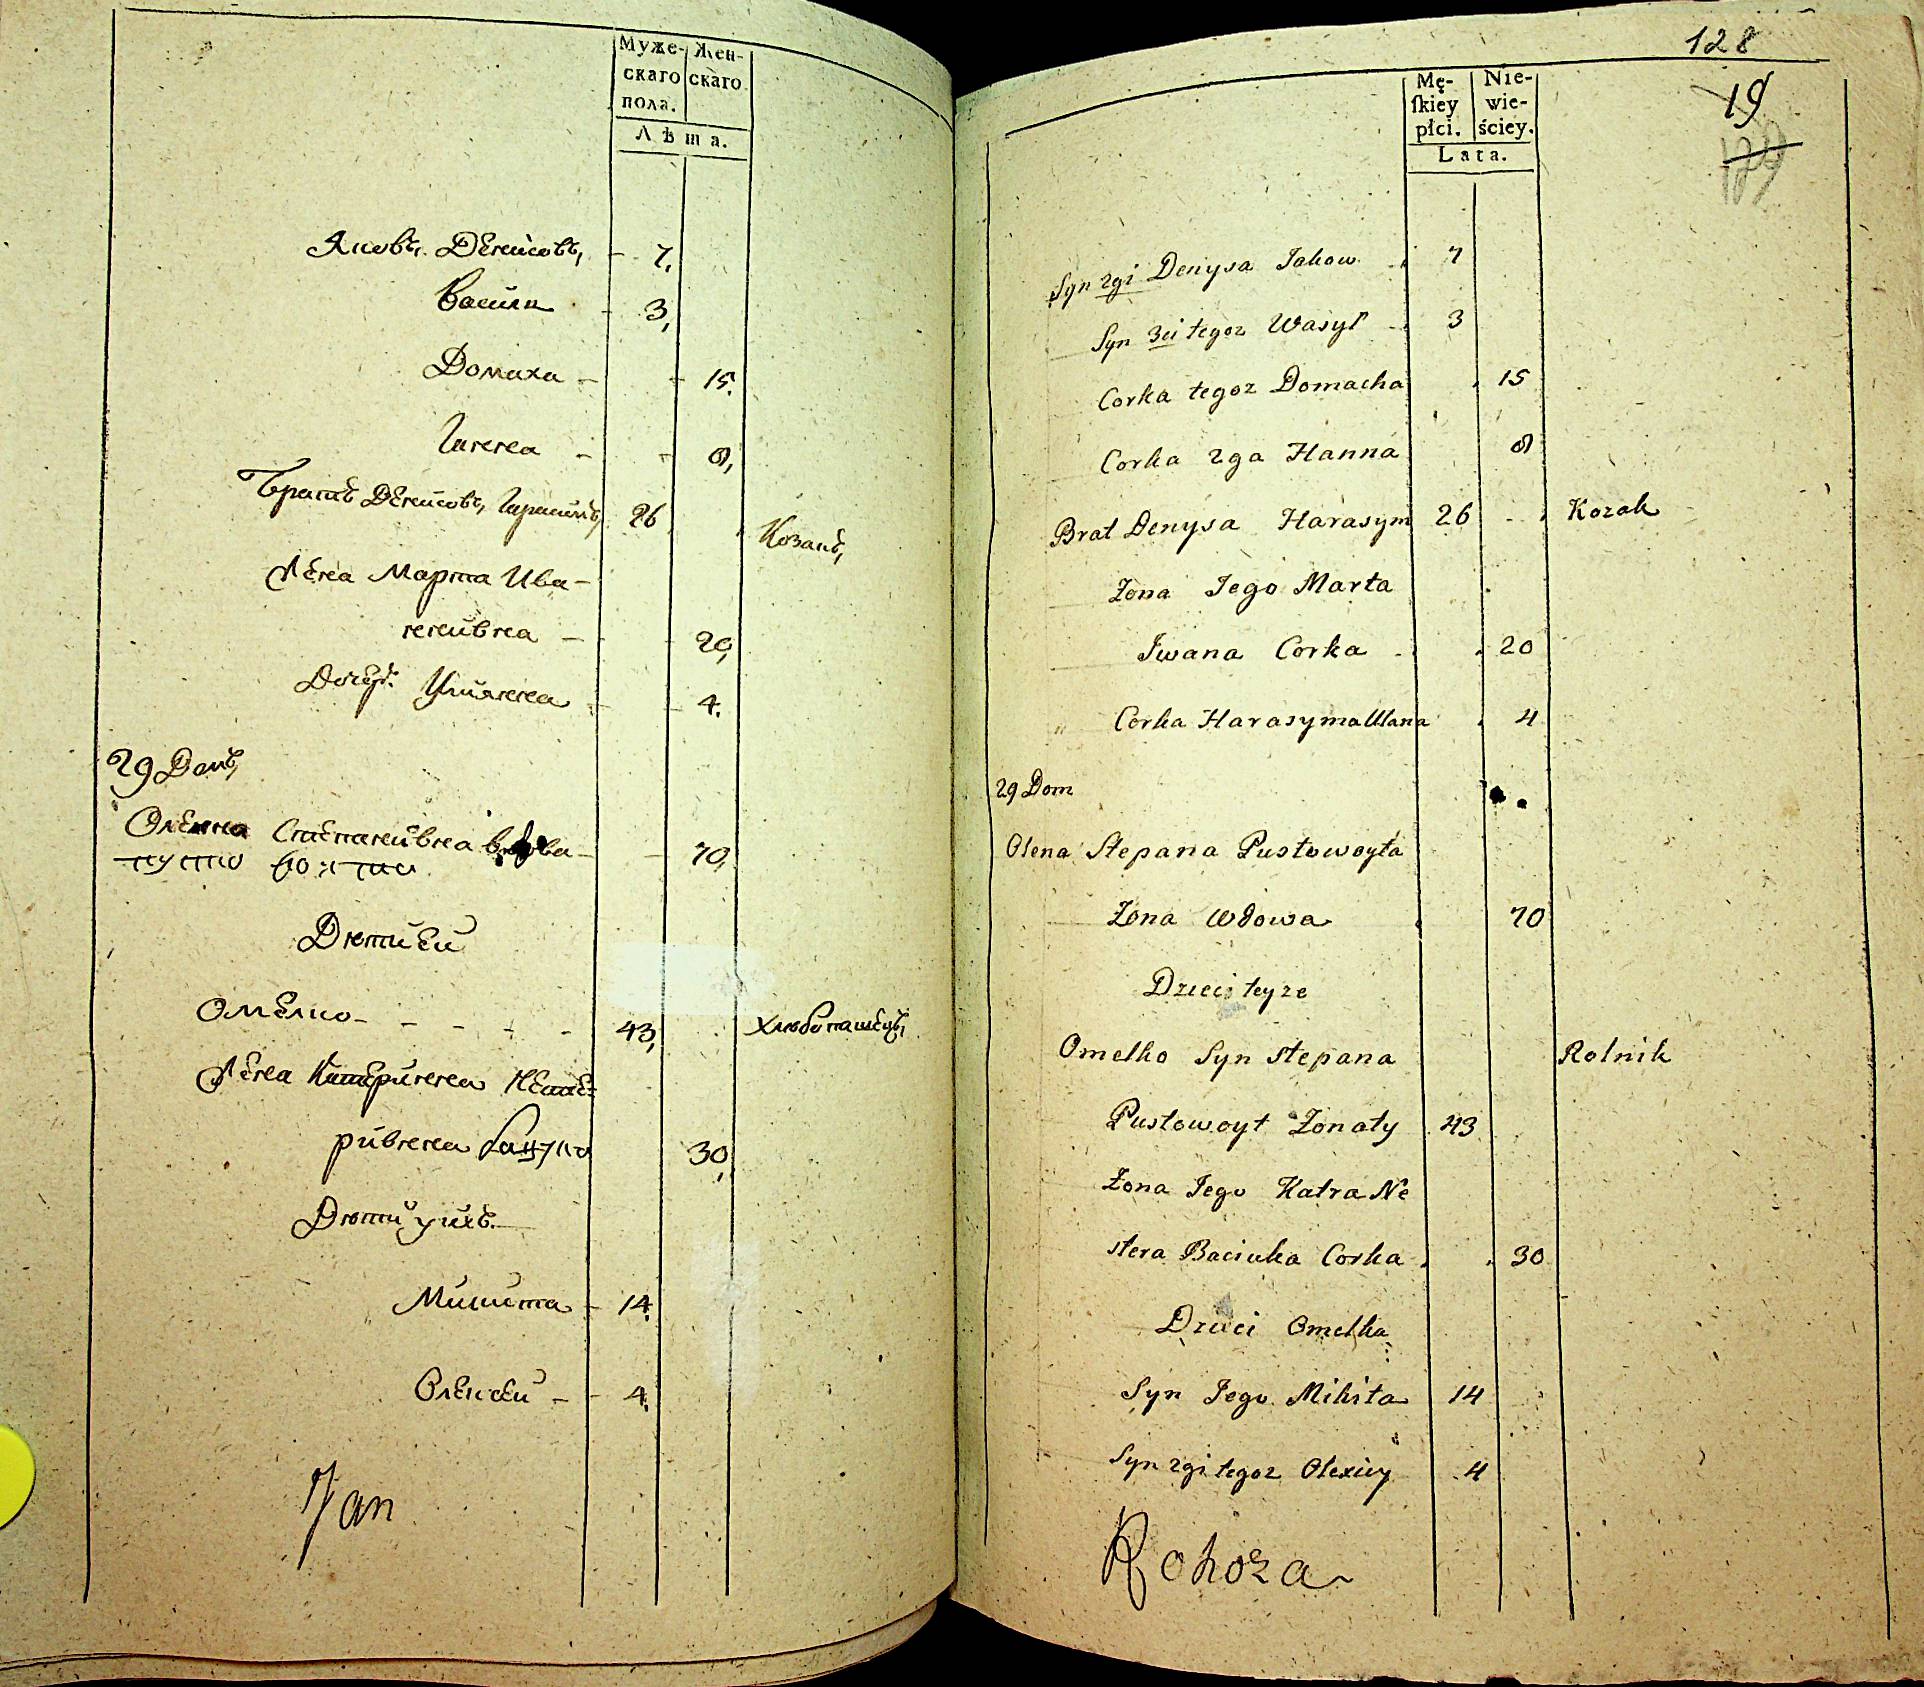 Муже- Жен-
скаго скаго
пола.
Лѣта.
Яковъ Денисовъ, - 7,
Василь - 3,
Домаха - - 15.
Ганна - - 8,
Братъ Денисовъ, Гарасимъ, 26 Козакъ,
Жена Марта Ива-
неневна - - 20,
Дочеръ Уляна - - 4.
29 Домъ,
Олена Степаневна вдова - - 70,
пустовойта
Дѣтиеи
Омелко - - - - - 43, хлѣбопашецъ,
Жена Катеринна Несте-
ривнна Бацука 30,
Дѣти ихъ
Микита - 14.
Олексей - - 4.
Jan
128
19
Mę- Nie-
ſkiey wie-
płci. ściey.
Lata.
Syn 2gi Denysa Jakow 7
Syn 3ci tegoz Wasyl 3
Corka tegoz Domacha 15
Corka 2ga Hanna 8
Brat Denysa Harasym 26 Kozak
Zona Jego Marta
Jwana Corka 20
Corka Harasyma Ulana 4
29 Dom
Olena Stepana Pustowoyta
Zona Wdowa 70
Dzieci teyze
Omelko Syn Stepana Rolnik
Pustowoyt Zonaty 43
Zona Jego Katra Ne
stera Baciuka Corka 30
Dzieci Omelka
Syn Jego Mikita 14
Syn 2gi tegoz Olexiey 4
Rohoza